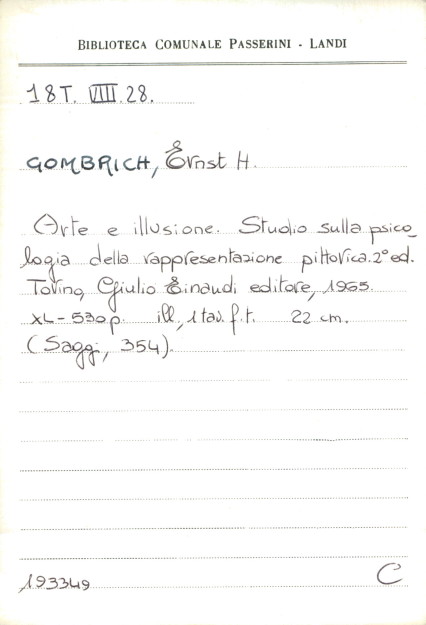 BIBLIOTECA COMUNALE PASSERINI - LANDI
18T. VIIII.28.
GOMBRICH, Ernst H.
Arte e illusione. Studio sulla psico_
logia della rappresentazione pittorica. 2° ed.
Torino, Giulio Einaudi editore, 1965.
XL-530p. ill., 1 tav. f.t. 22 cm.
(Saggi, 354).
193349 C